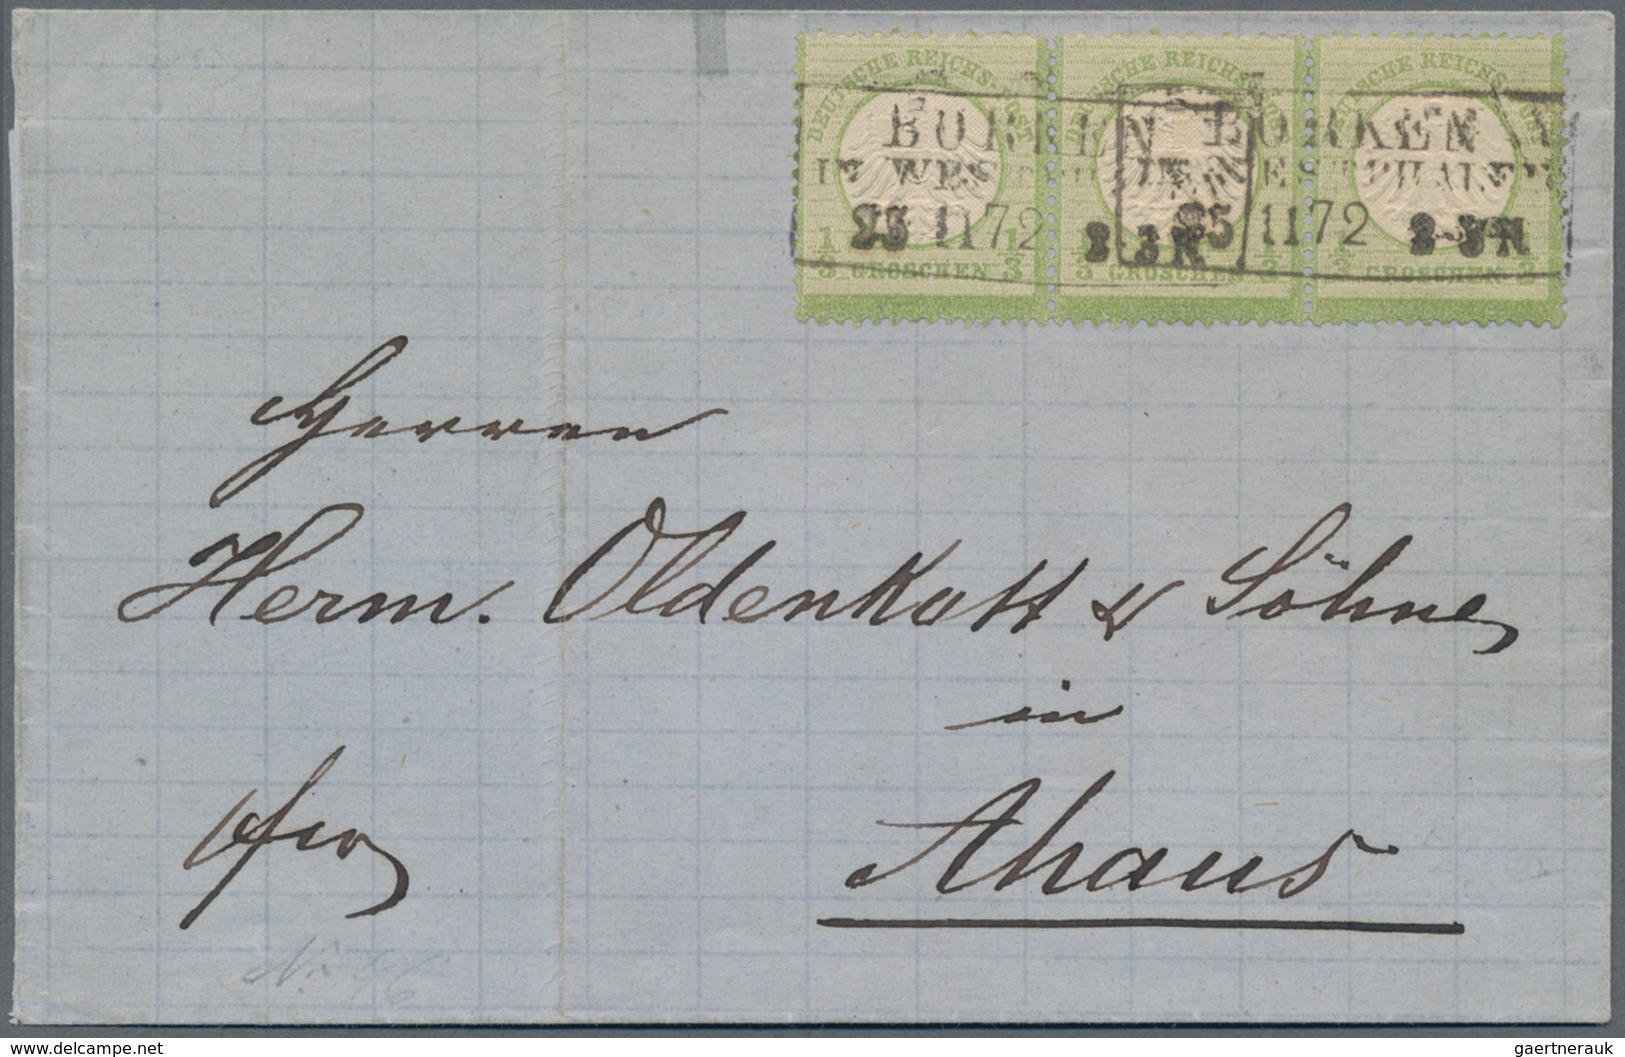 DEUTSCHE REICHS-POST DEUTSCHE REICHS-POST DEUTSCHE REICHS-POST
BORKEN BORKEN
IN WESTPHALEN IN WESTPHALEN
25 11 72 2-3N 25 11 72 2-3N
1/3 GROSCHEN 1/3 1/3 GROSCHEN 1/3 1/3 GROSCHEN 1/3
Herren
Herm. Oldenkott & Söhne
in
fro
Ahaus
www.delcampe.net
gaertnerauk